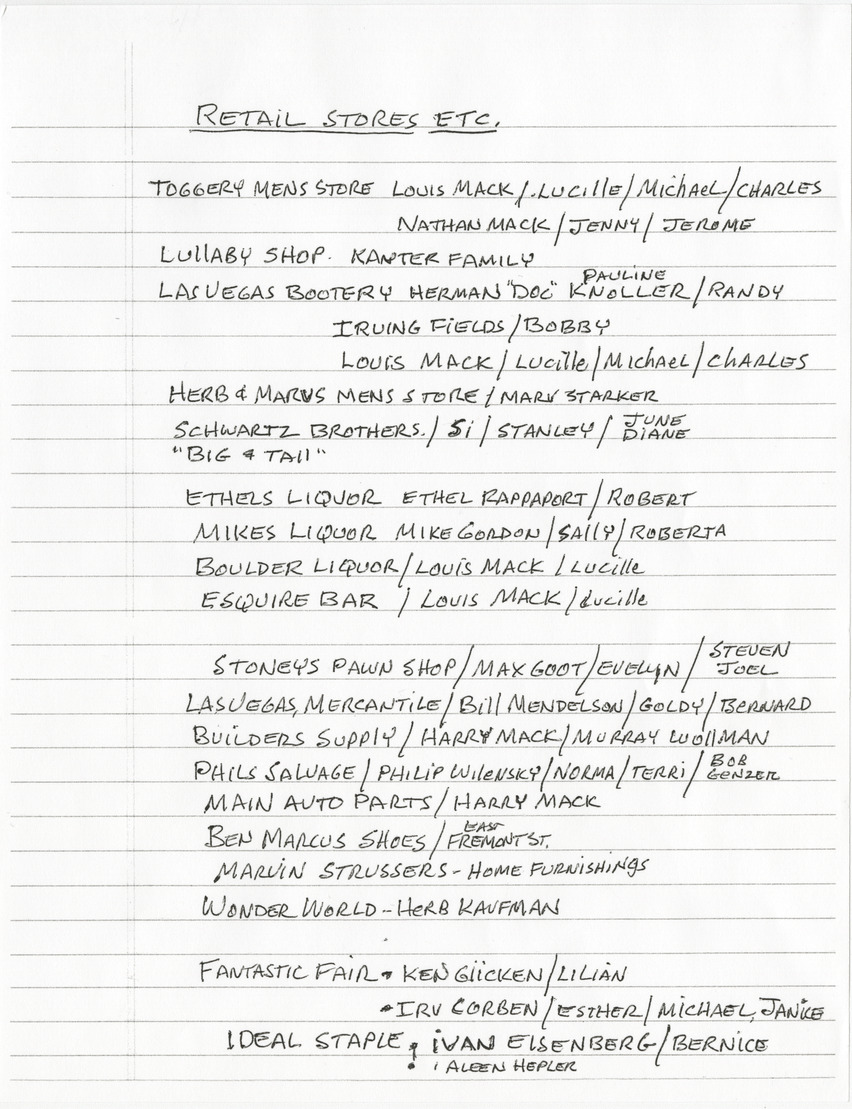 RETAIL STORES ETC.
TOGGERY MENS STORE LOUIS MACK / LUCILLE / MICHAEL / CHARLES
NATHAN MACK / JENNY / JEROME
LULLABY SHOP. KANTER FAMILY
PAULINE
LAS VEGAS BOOTERY HERMAN "DOC" KNOLLER / RANDY
IRVING FIELDS / BOBBY
LOUIS MACK / LUCILLE / MICHAEL / CHARLES
HERB & MARVS MENS STORE / MARV STARKER
SCHWARTZ BROTHERS. / SI / STANLEY / JUNE
DIANE
"BIG & TALL"
ETHELS LIQUOR ETHEL RAPPAPORT / ROBERT
MIKES LIQUOR MIKE GORDON / SALLY / ROBERTA
BOULDER LIQUOR / LOUIS MACK / LUCILLE
ESQUIRE BAR / LOUIS MACK / LUCILLE
STONEY'S PAWN SHOP / MAX GOOT / EVELYN / STEVEN
JOEL
LAS VEGAS MERCANTILE / BILL MENDELSON / GOLDY / BERNARD
BUILDERS SUPPLY / HARRY MACK / MURRAY WOLLMAN
PHILS SALVAGE / PHILIP WILENSKY / NORMA / TERRI / BOB
GENZER
MAIN AUTO PARTS / HARRY MACK
BEN MARCUS SHOES / EAST
FREMONT ST.
MARVIN STRUSSERS - HOME FURNISHINGS
WONDER WORLD - HERB KAUFMAN
FANTASTIC FAIR • KEN GLICKEN / LILIAN
• IRV CORBEN / ESTHER / MICHAEL, JANICE
IDEAL STAPLE • IVAN EISENBERG / BERNICE
• ALEEN HEPLER